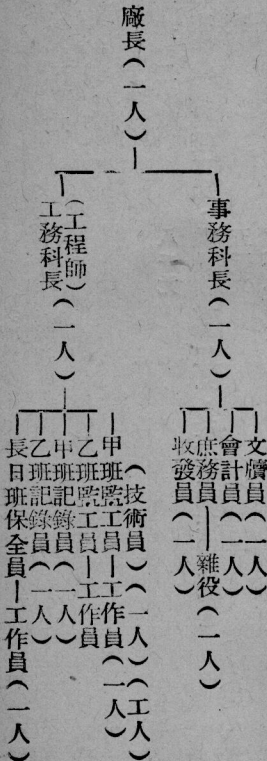 廠長（一人）
事務科長（一人）
文牘員（一人）
會計員（一人）
庶務員——雜役（一人）
收發員（一人）
（工程師）
工務科長（一人）
（技術員）（一人）（工人）
甲班監工員—工作員（一人）
乙班監工員—工作員
甲班記錄員（一人）
乙班記錄員（一人）
長日班保全員—工作員（一人）